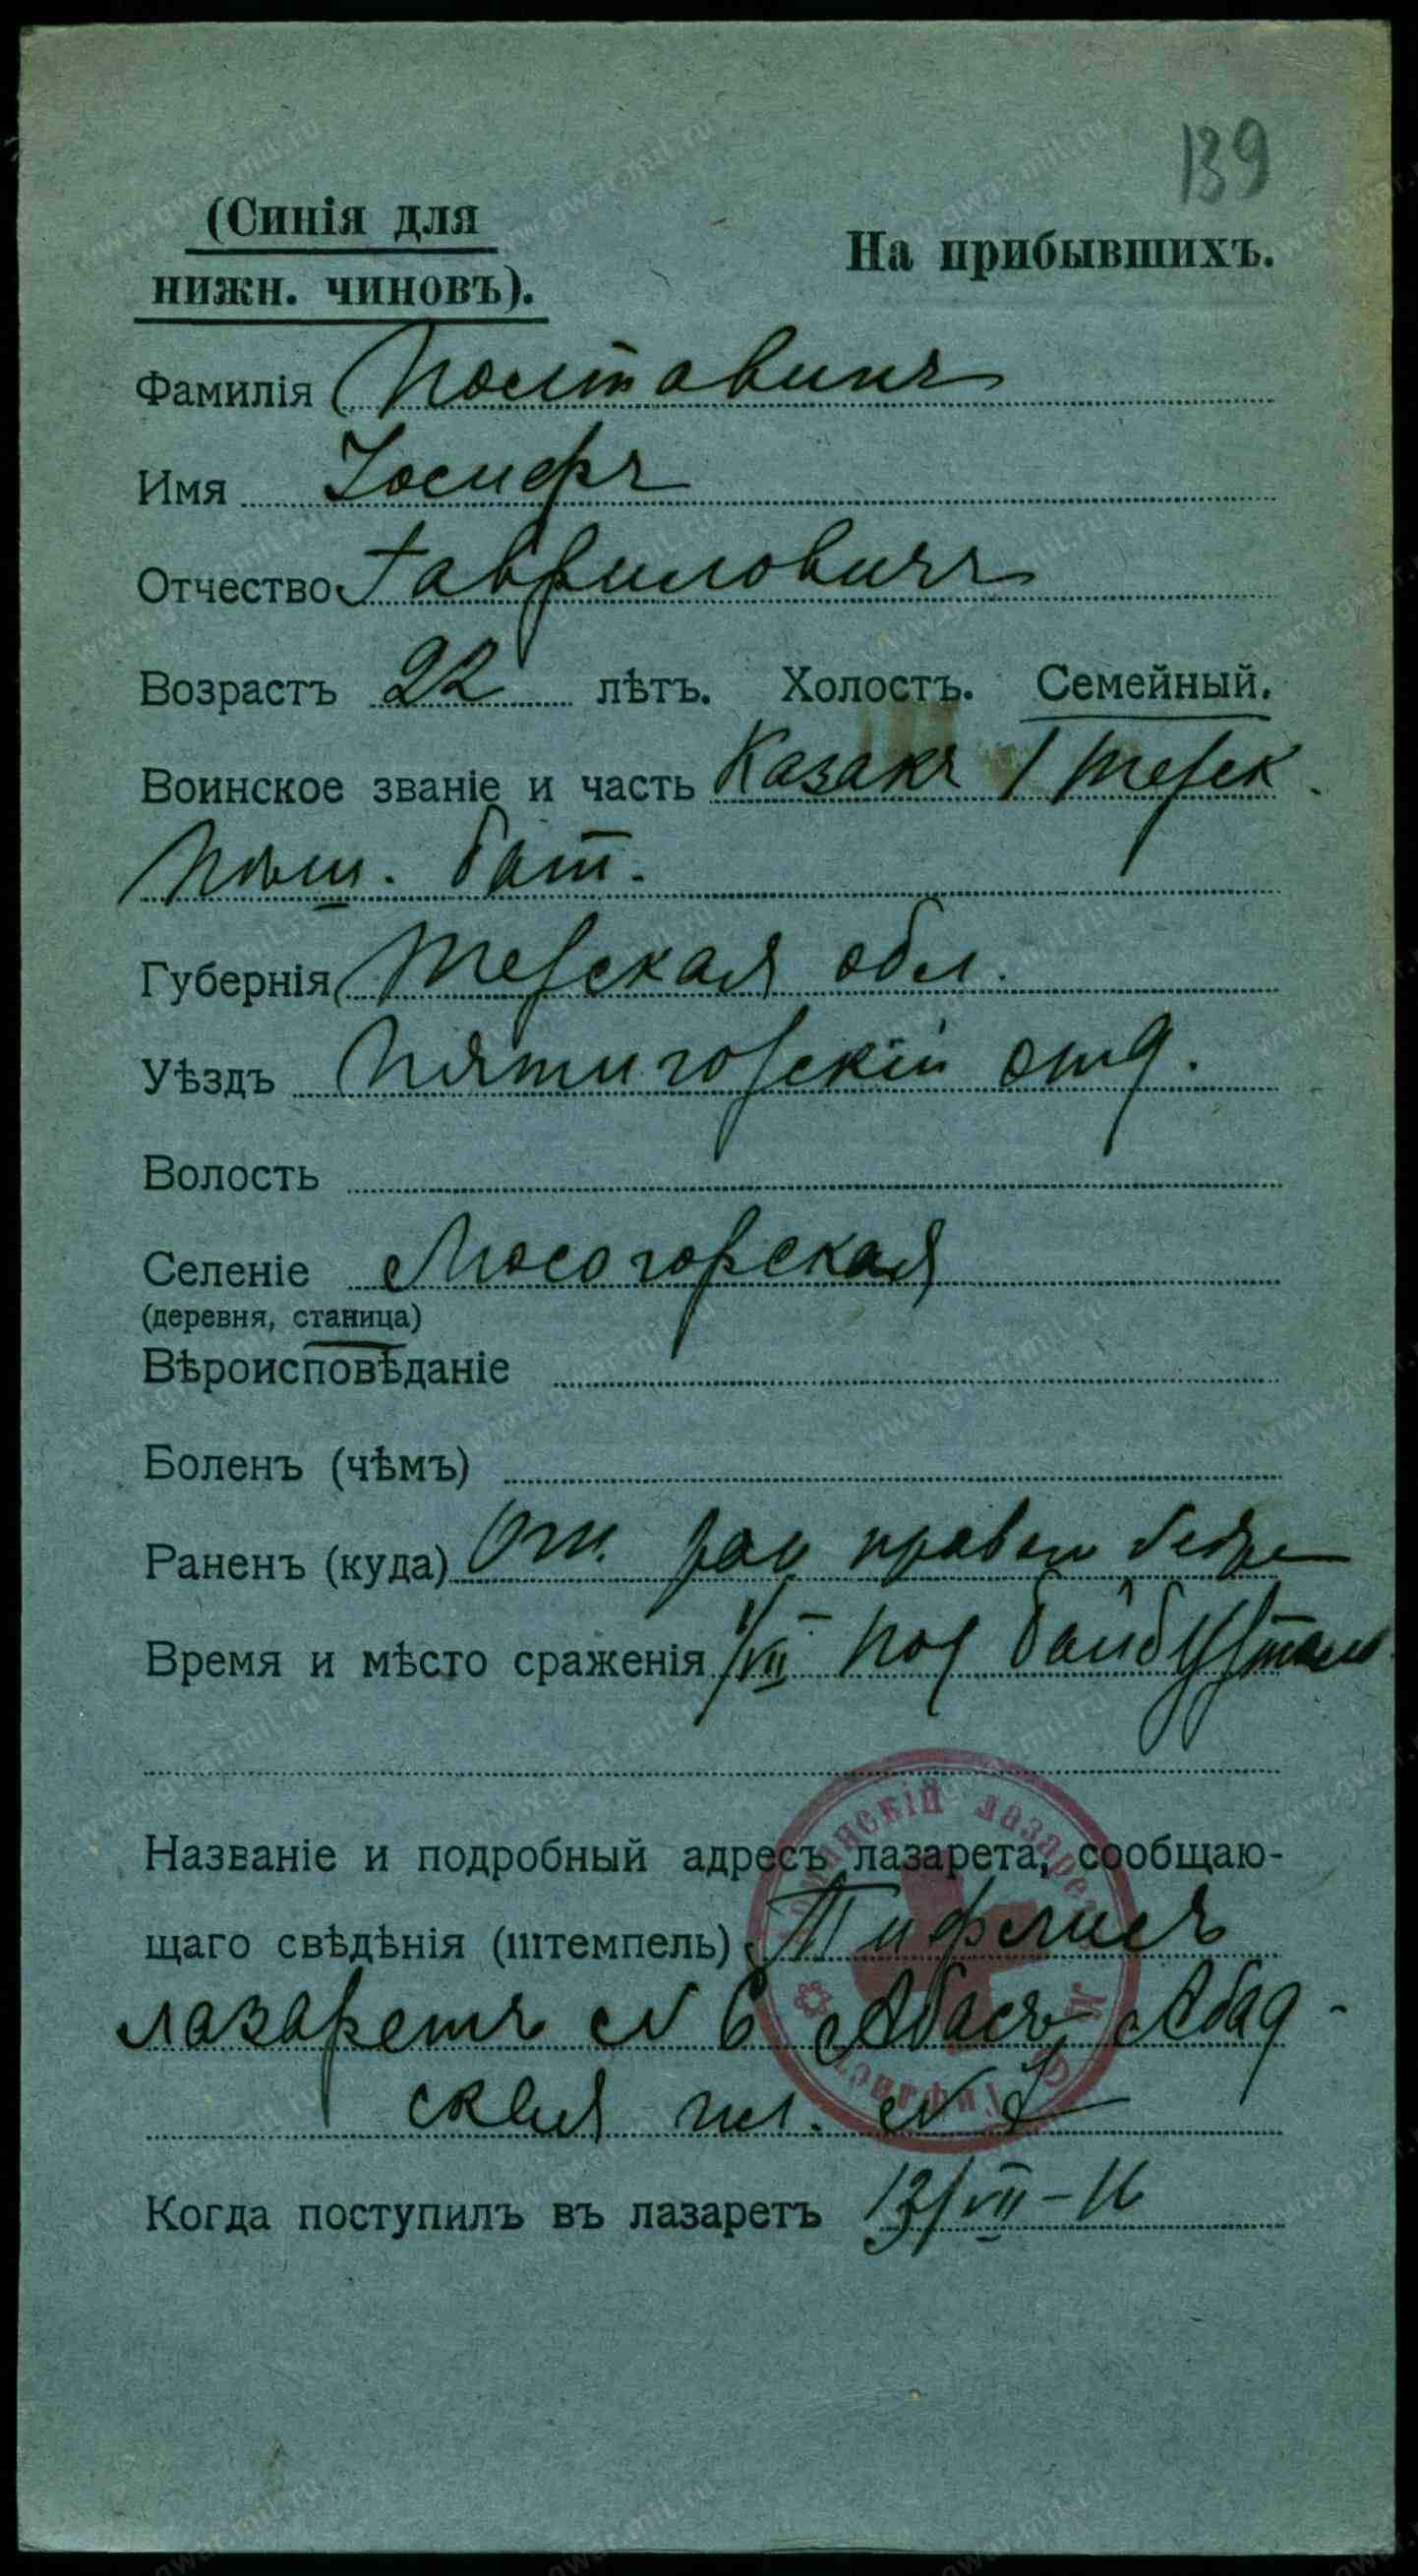 139
(Синія для
нижн. чиновъ).
На прибывшихъ.
Фамилія Полтавинъ
Имя Іосифъ
Отчество Гавриловичъ
Возрастъ 22 лѣтъ. Холостъ. Семейный.
Воинское званіе и часть Казакъ 1 терск
пласт. бат.
Губернія Терская обл.
Уѣздъ Пятигорскій отд.
Волость
Селеніе Лысогорская
(деревня, станица)
Вѣроисповѣданіе
Боленъ (чѣмъ)
Раненъ (куда) ран правого бедра
Время и мѣсто сраженія 1/VII под Байбуртомъ
Названіе и подробный адресъ лазарета, сообщаю-
щаго свѣдѣнія (штемпель) Тифлисъ
лазаретъ № 6 Абасъ-Абад-
ская пл. №
Когда поступилъ въ лазаретъ 13/VII-16